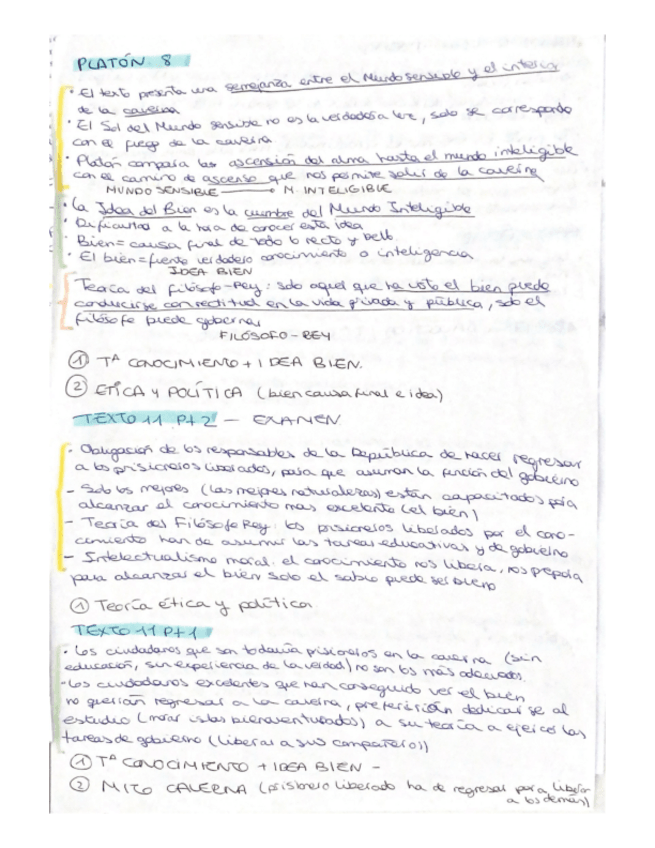 PLATÓN 8
· El texto presenta una semejanza entre el Mundo sensible y el interior
de la caverna
· El Sol del Mundo sensible no es la verdadera luz, solo se corresponde
con el fuego de la caverna
· Platón compara la ascensión del alma hasta el mundo inteligible
con el camino de ascenso que nos permite salir de la caverna
MUNDO SENSIBLE → M. INTELIGIBLE
· La Idea del Bien es la cumbre del Mundo Inteligible
· Dificultad a la hora de conocer esta idea
· Bien = causa final de todo lo recto y bello.
· El bien = fuente verdadero conocimiento o inteligencia
IDEA BIEN
Teoría del filósofo-Rey: solo aquel que ha visto el bien puede
conducirse con rectitud en la vida privada y pública, solo el
filósofo puede gobernar
FILÓSOFO-REY
① Tª CONOCIMIENTO + IDEA BIEN.
② ETICA Y POLÍTICA (bien causa final e idea)
TEXTO 11 Pt 2 - EXAMEN
· Obligación de los responsables de la República de hacer regresar
a los prisioneros liberados, para que asuman la función del gobierno
- Solo los mejores (las mejores naturalezas) están capacitados para
alcanzar el conocimiento mas excelente (el bien)
- Teoría del Filósofo Rey: los prisioneros liberados por el cono-
cimiento han de asumir las tareas educativas y de gobierno
- Intelectualismo moral: el conocimiento nos libera, nos prepara
para alcanzar el bien solo el sabio puede ser bueno
① Teoría ética y política
TEXTO 11 Pt 1
· Los ciudadanos que son todavía prisioneros en la caverna (sin
educación, sin experiencia de la verdad) no son los más adecuados.
- Los ciudadanos excelentes que han conseguido ver el bien
no querrían regresar a la caverna, preferirían dedicarse al
estudio (morar islas bienaventurados) a su teoría a ejercer las
tareas de gobierno (liberar a sus compañeros))
① Tª CONOCIMIENTO + IDEA BIEN -
② MITO CAVERNA (prisionero liberado ha de regresar para liberar
a los demás)